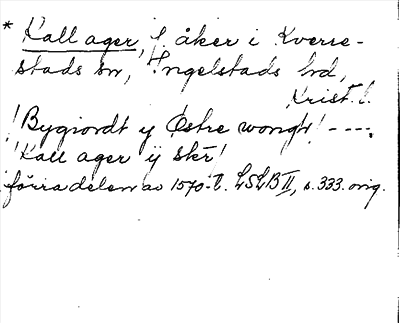 * Kall ager, f. åker i Kverre-
stads sn, Ingelstads hd,
Krist. l.
! Bygiordt y Østre wongh! ----,
! Kall ager ÿ skr̄!
förra delen av 1570-t. LSLB II, s. 333. orig.